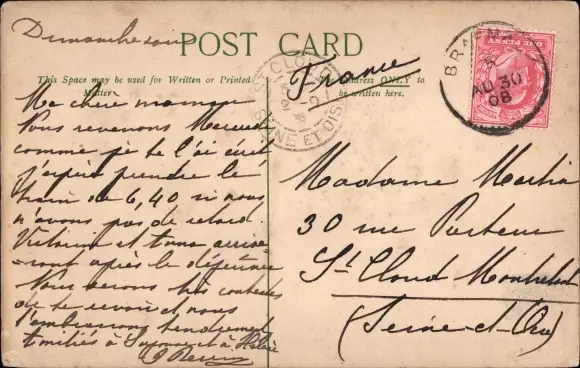 Dimanche soir
POST CARD
This Space may be used for Written or Printed Matter.
The Address ONLY to be written here.
France
BRAEM
AU 30
08
ST CLOUD
SEINE ET OISE
Ma chère maman
Nous revenons Mercredi
comme je te l'ai écrit
j'espère prendre le
train de 6,40 si nous
n'avons pas de retard.
et
ront après le déjeuner
Nous serons très contents
de te revoir et nous
t'embrassons tendrement
Amitiés à Suzanne et à
Madame
30 rue Pasteur
St Cloud Montretout
(Seine-et-Oise)